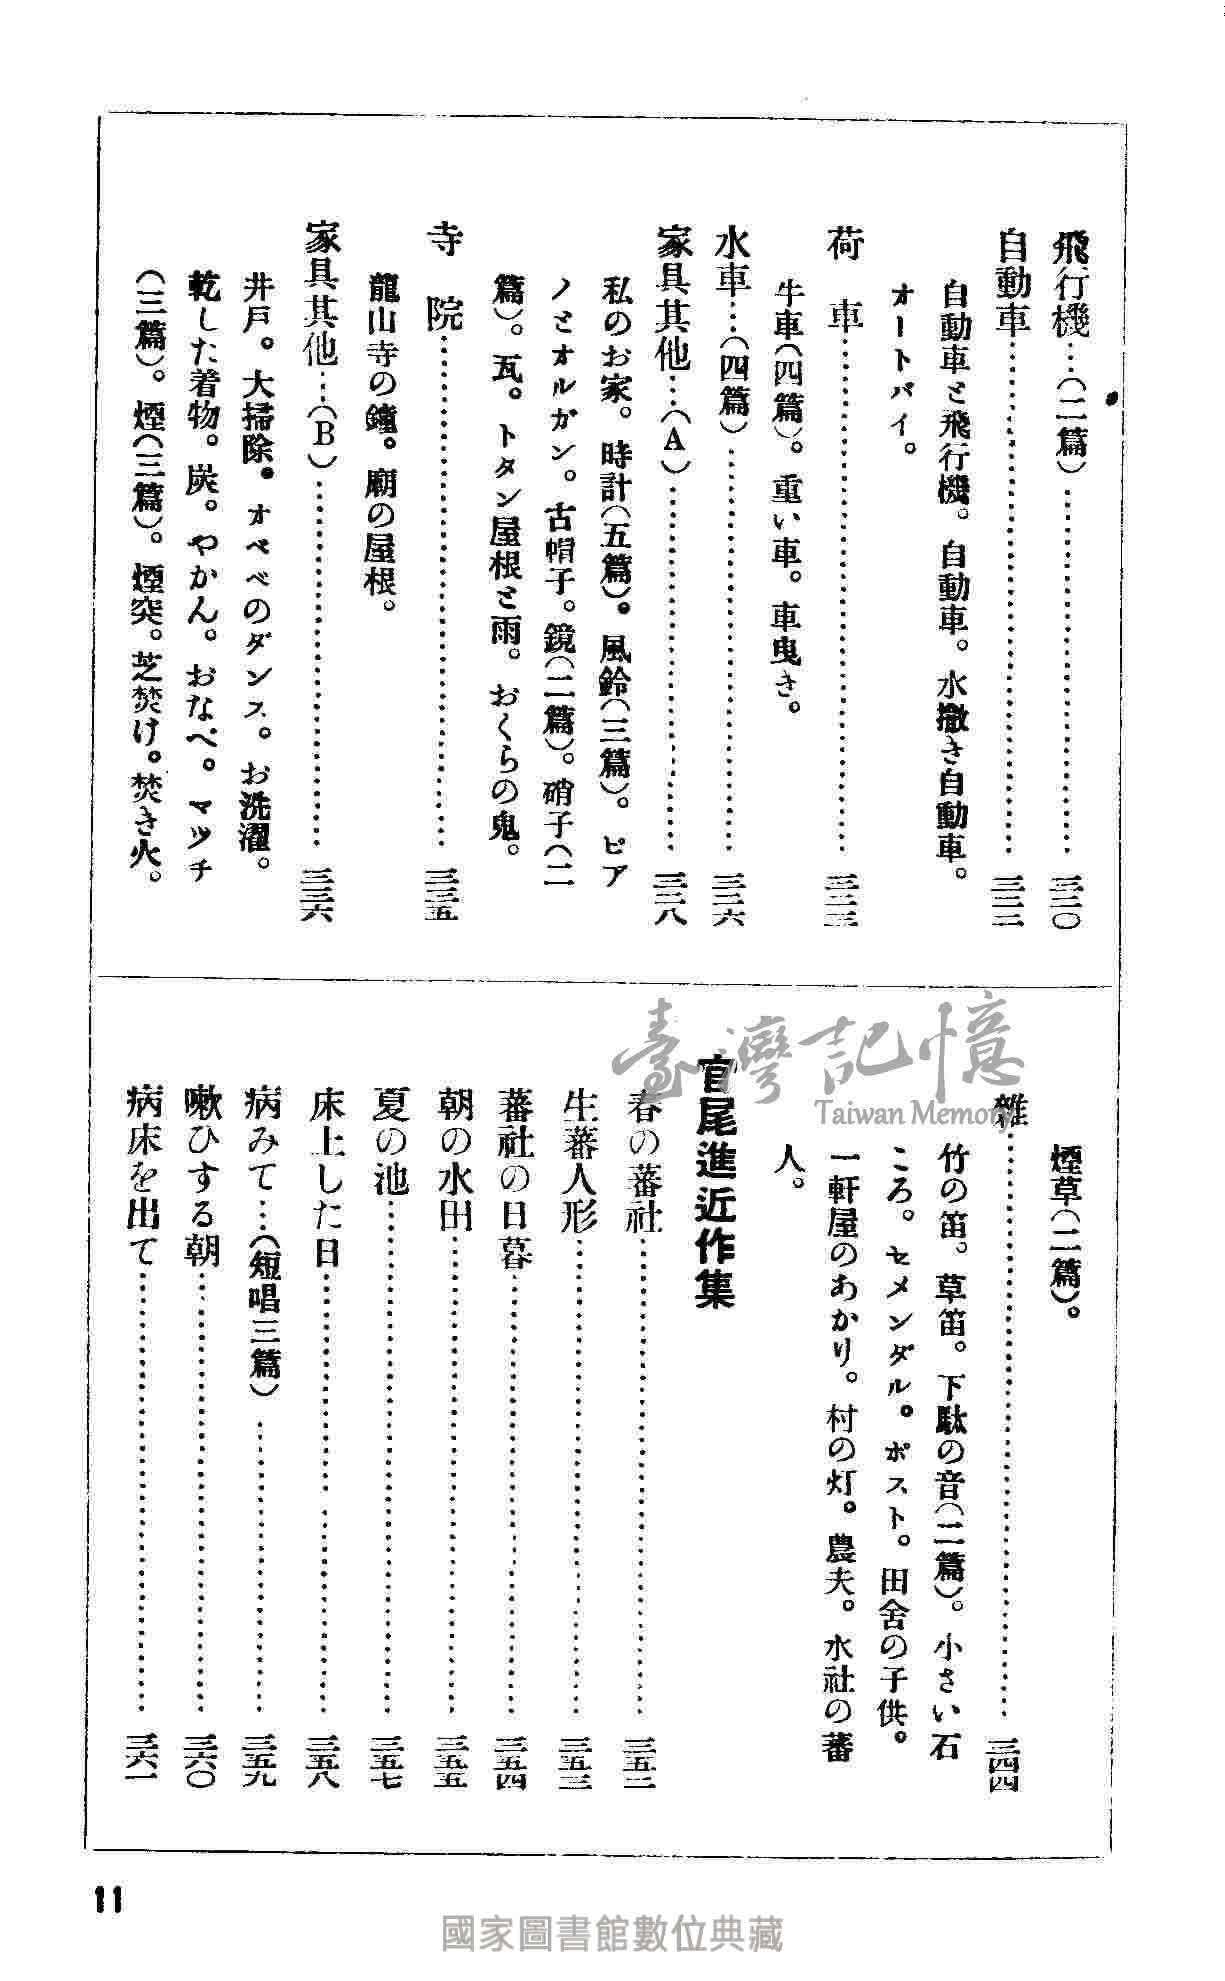 飛行機…(二篇)……三二〇
自動車……三二二
自動車と飛行機。自動車。水撒き自動車。
オートバイ。
荷車……三二五
牛車(四篇)。重い車。車曳き。
水車…(四篇)……三二六
家具其他…(A)……三二八
私のお家。時計(五篇)。風鈴(三篇)。ピア
ノとオルガン。古帽子。鏡(二篇)。硝子(二
篇)。瓦。トタン屋根と雨。おくらの鬼。
寺院……三三五
龍山寺の鐘。廟の屋根。
家具其他…(B)……三三六
井戸。大掃除。オベベのダンス。お洗濯。
乾した着物。炭。やかん。おなべ。マッチ
(三篇)。煙(三篇)。煙突。芝焚け。焚き火。
煙草(二篇)。
雜……三四四
竹の笛。草笛。下駄の音(二篇)。小さい石
ころ。セメンダル。ポスト。田舍の子供。
一軒屋のあかり。村の灯。農夫。水社の蕃
人。
宮尾進近作集
春の蕃社……三五二
生蕃人形……三五三
蕃社の日暮……三五四
朝の水田……三五五
夏の池……三五七
床上した日……三五八
病みて…(短唱三篇)……三五九
嗽ひする朝……三六〇
病床を出て……三六一
11
臺灣記憶
Taiwan Memory
國家圖書館數位典藏